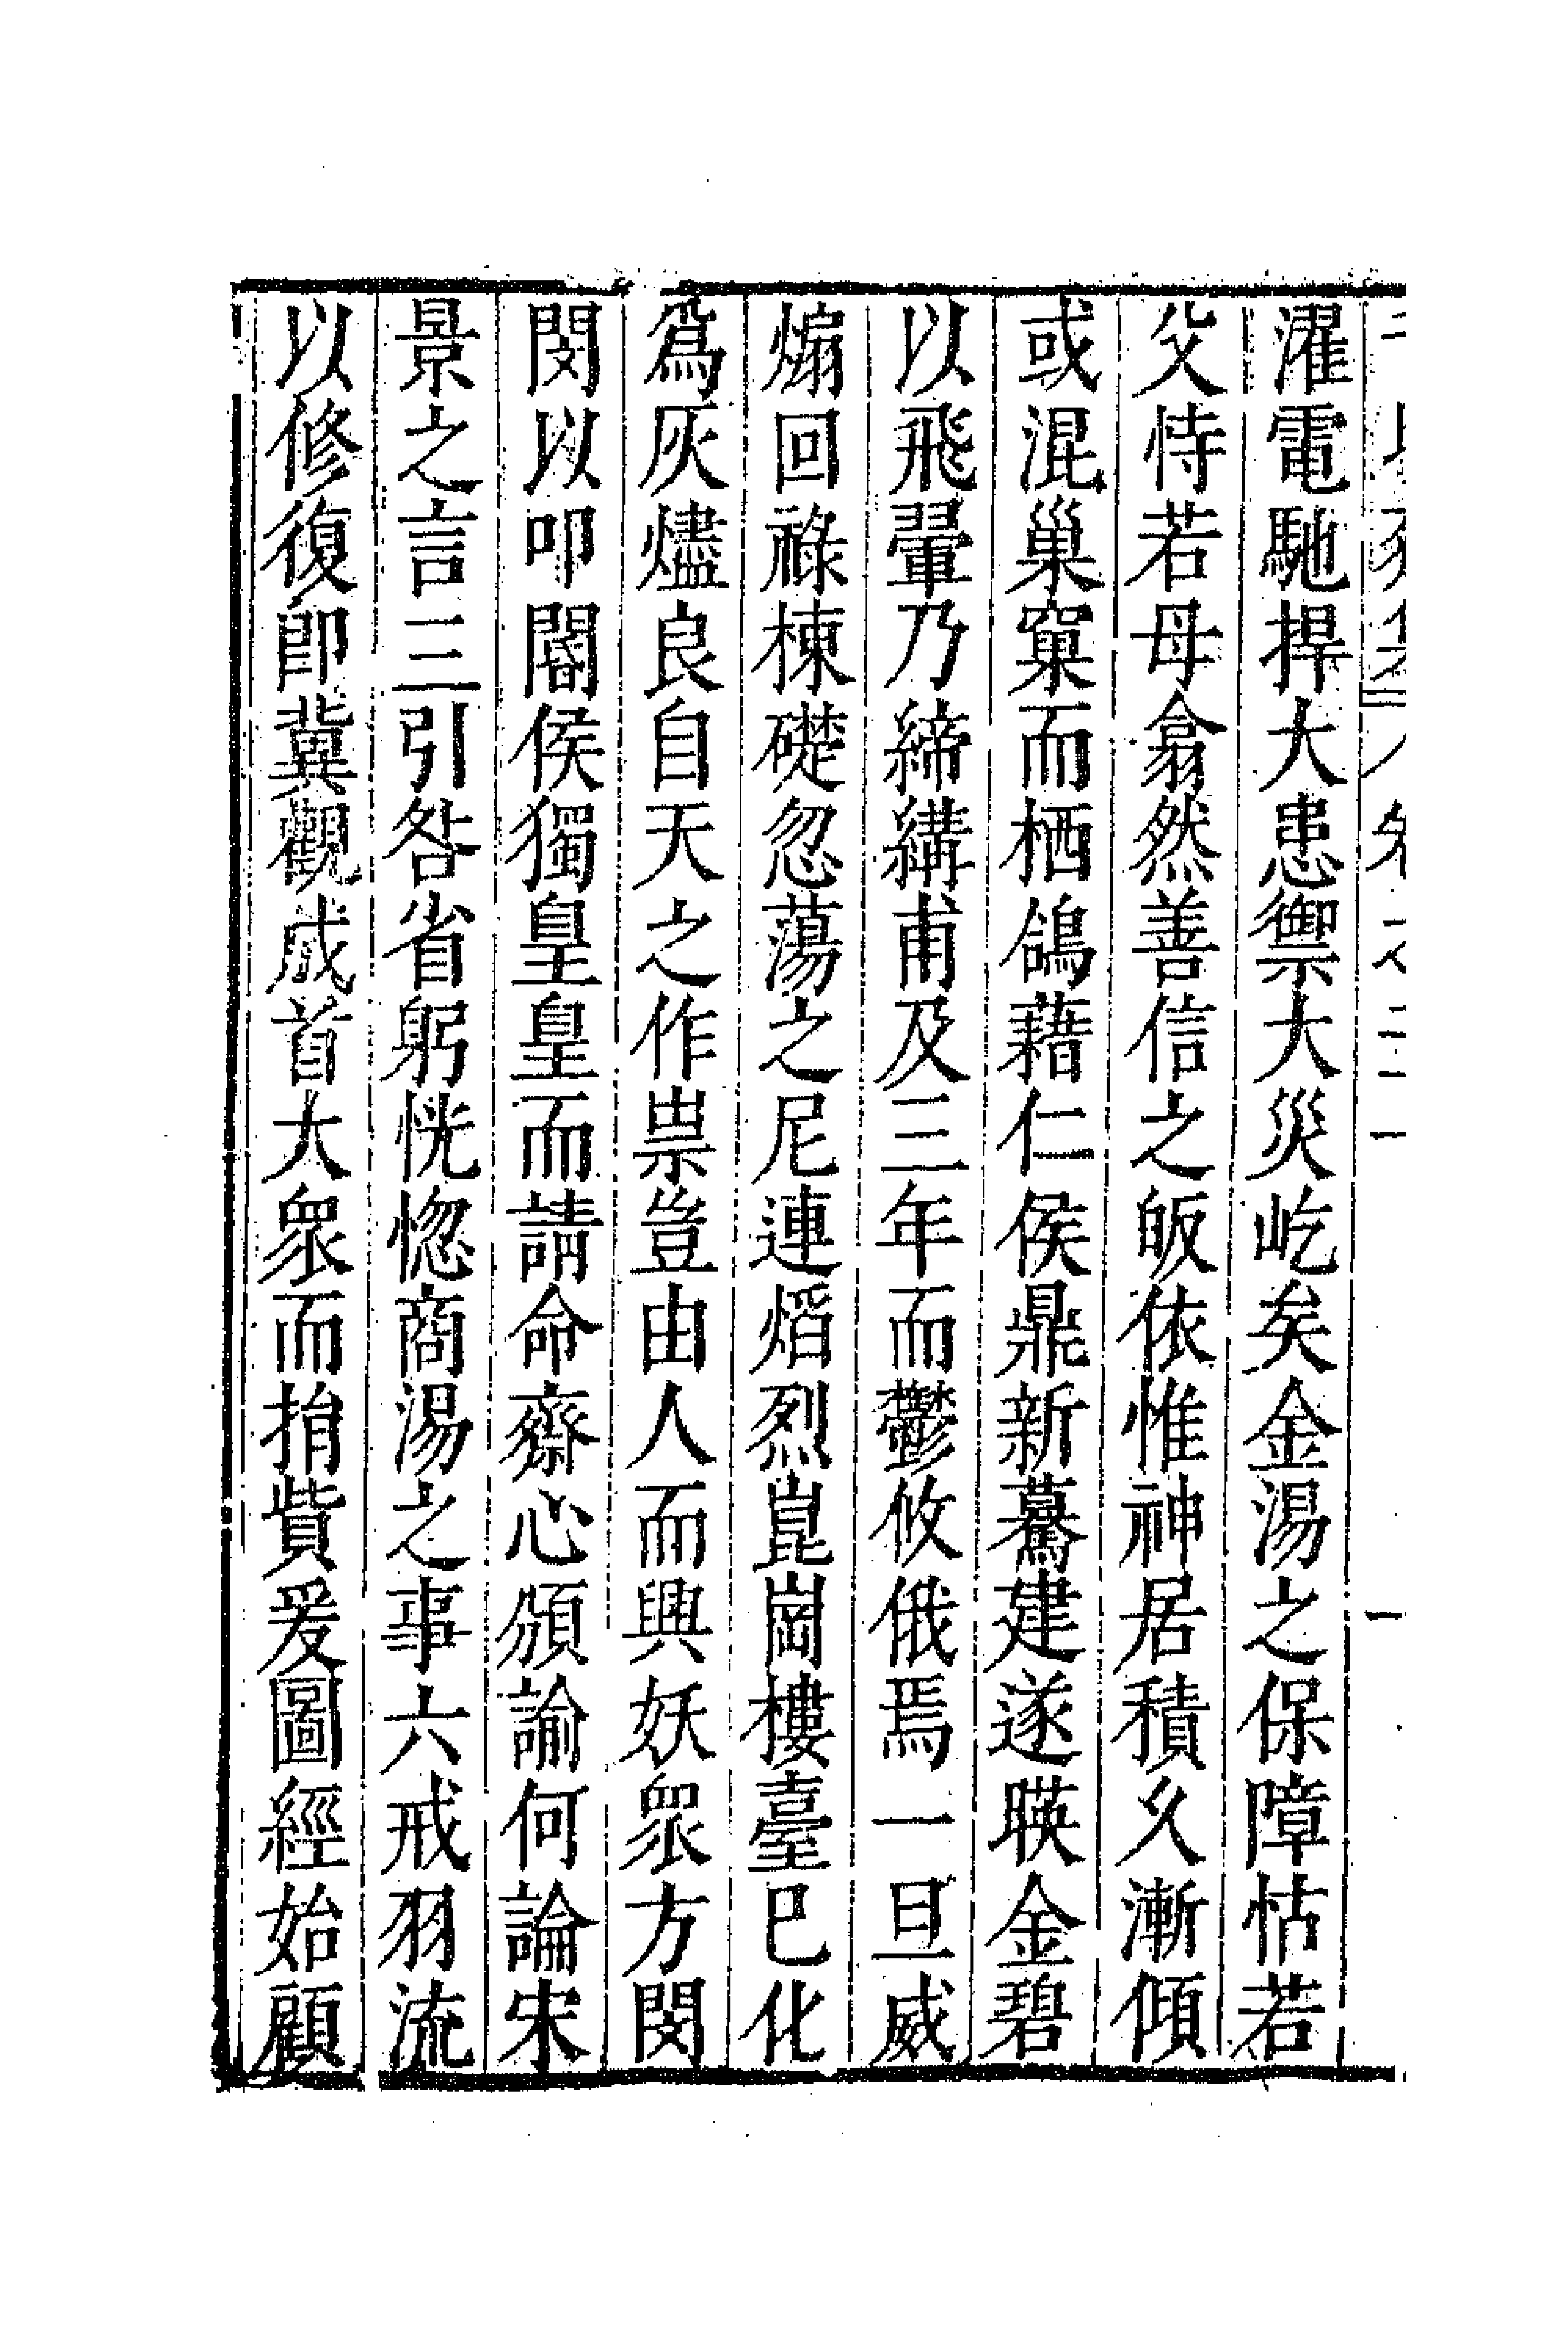 濯電馳捍大患禦大災屹矣金湯之保障怙若
父恃若母翕然善信之皈依惟神居積久漸傾
或混巢窠而栖鴿藉仁侯鼎新驀建遂暎金碧
以飛翬乃締構甫及三年而鬱攸俄焉一旦威
煽回祿棟礎忽蕩之尼連熖烈崑崗樓臺已化
爲灰燼良自天之作祟豈由人而興妖眾方閔
閔以叩閽侯獨皇皇而請命齋心頒諭何論宋
景之言三引咎省躬恍惚商湯之事六戒羽流
以修復卽冀觀成首大眾而捐貲爰圖經始顧